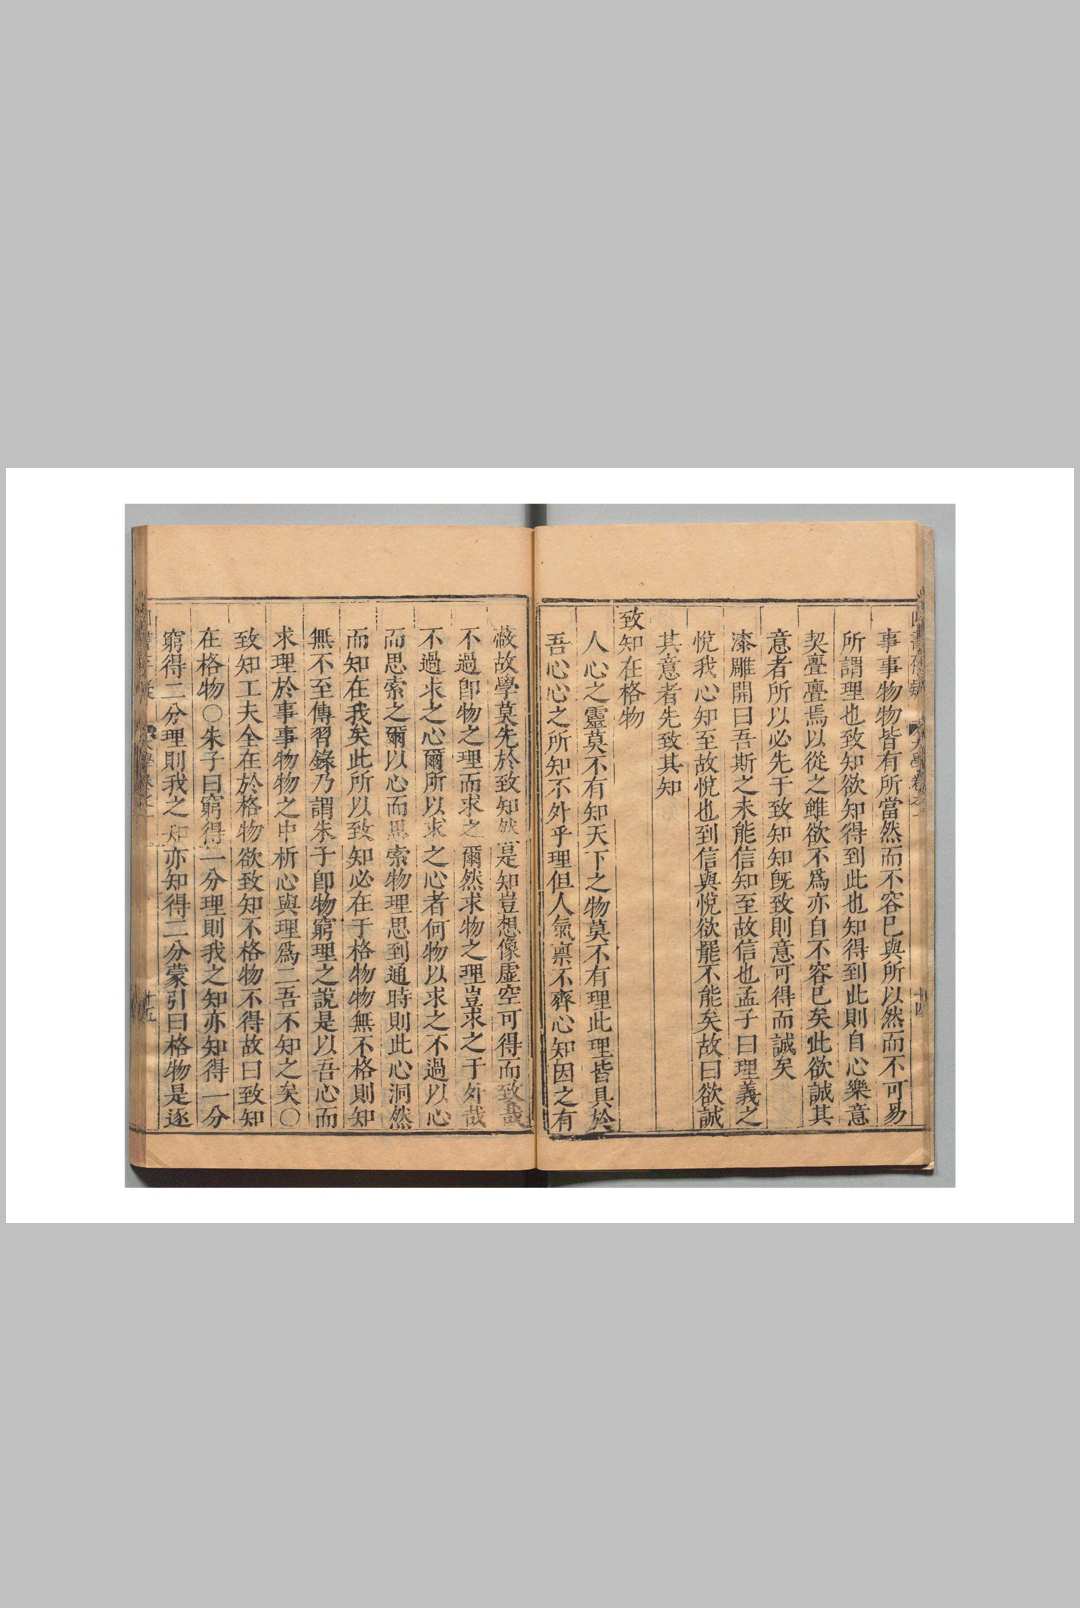 事事物物皆有所當然而不容已與所以然而不可易
所謂理也致知欲知得到此也知得到此則自心樂意
契亹亹焉以從之雖欲不爲亦自不容已矣此欲誠其
意者所以必先于致知知旣致則意可得而誠矣
漆雕開曰吾斯之未能信知至故信也孟子曰理義之
悅我心知至故悅也到信與悅欲罷不能矣故曰欲誠
其意者先致其知
致知在格物
人心之靈莫不有知天下之物莫不有理此理皆具於
吾心心之所知不外乎理但人氣禀不齊心知因之有
蔽故學莫先於致知然是知豈想像虛空可得而致哉
不過卽物之理而求之爾然求物之理豈求之于外哉
不過求之心爾所以求之心者何物以求之不過以心
而思索之爾以心而思索物理思到通時則此心洞然
而知在我矣此所以致知必在于格物物無不格則知
無不至傳習錄乃謂朱子卽物窮理之說是以吾心而
求理於事事物物之中析心與理爲二吾不知之矣○
致知工夫全在於格物欲致知不格物不得故曰致知
在格物○朱子曰窮得一分理則我之知亦知得一分
窮得二分理則我之知亦知得二分蒙引曰格物是逐
十五